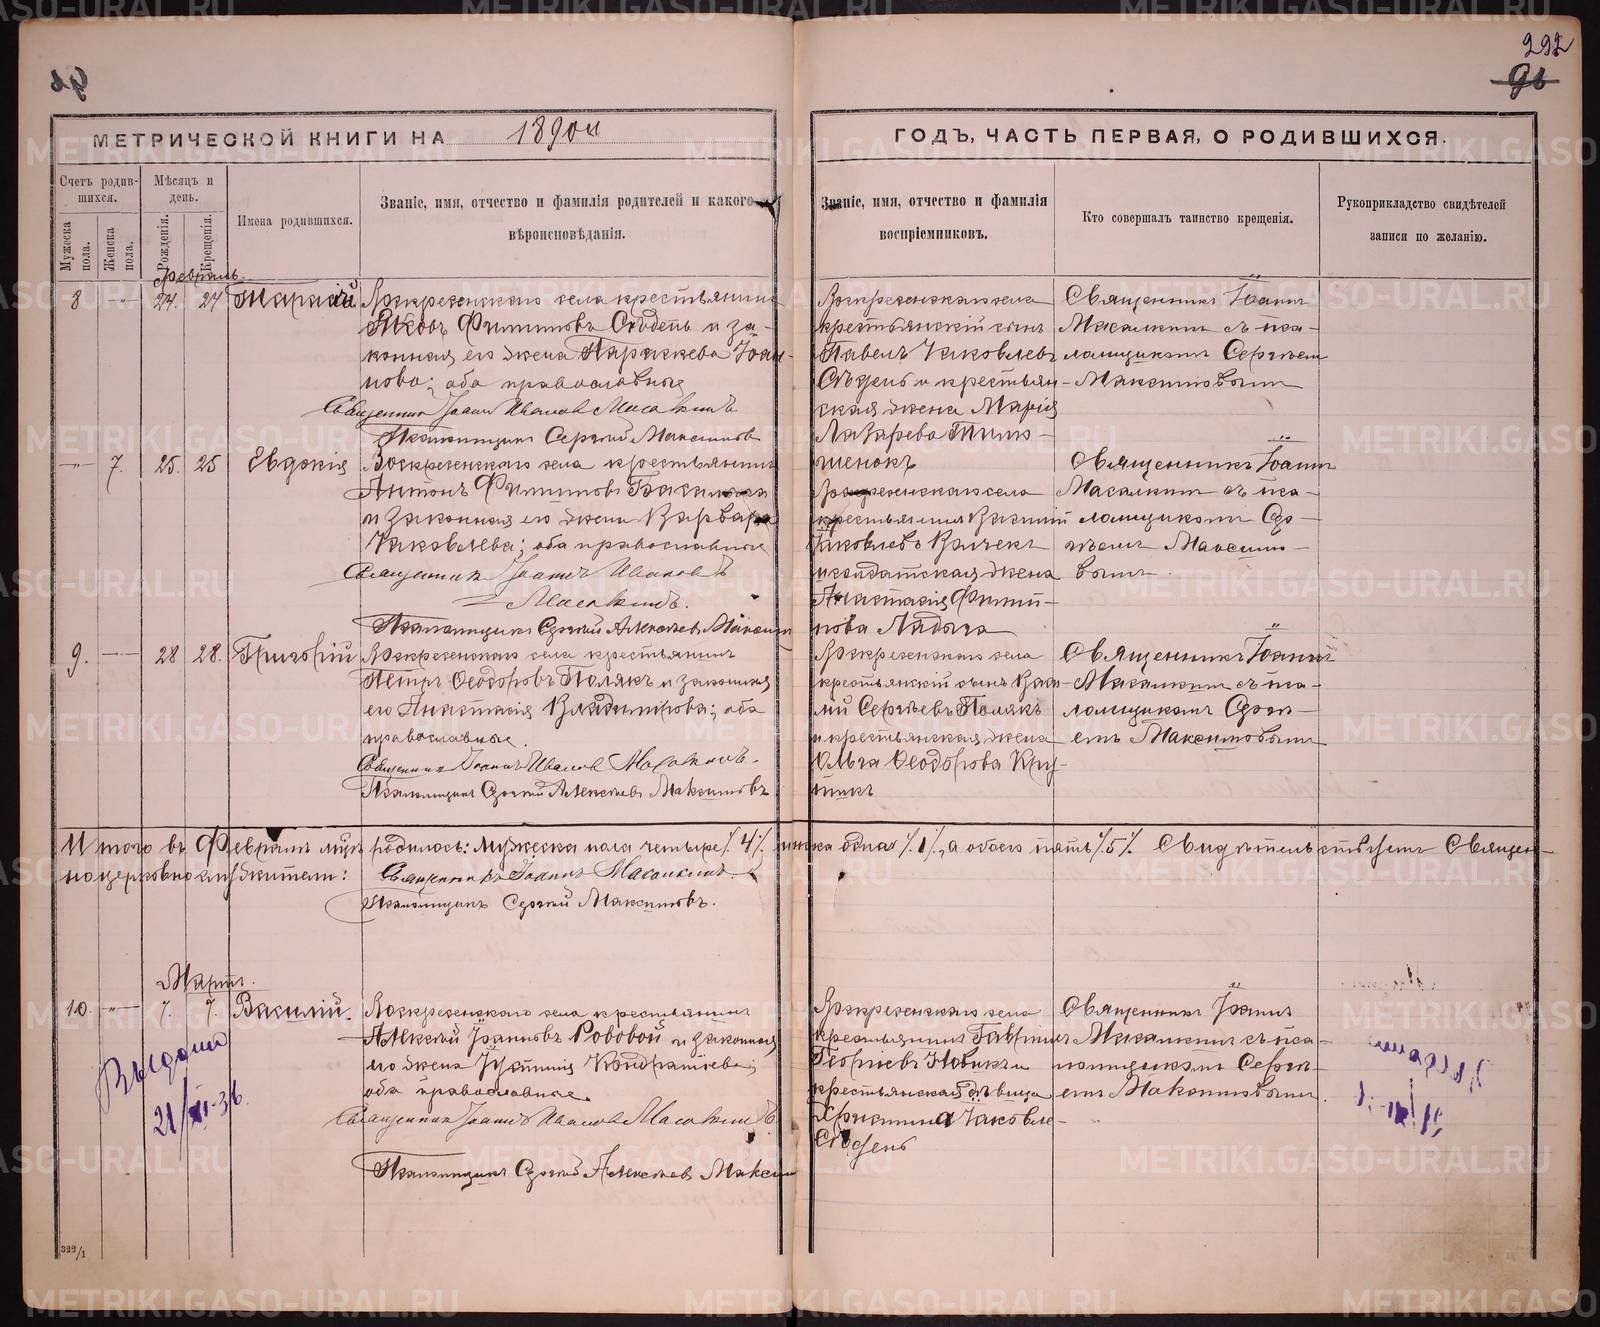 292
96
МЕТРИЧЕСКОЙ КНИГИ НА 1890й
ГОДЪ, ЧАСТЬ ПЕРВАЯ, О РОДИВШИХСЯ.
Счетъ родив-
шихся.
Мужеска
пола.
Женска
пола.
Мѣсяцъ и
день.
Рожденія.
Крещенія.
Имена родившихся.
Званіе, имя, отчество и фамилія родителей и какого
вѣроисповѣданія.
Званіе, имя, отчество и фамилія
воспріемниковъ.
Кто совершалъ таинство крещенія.
Рукоприкладство свидѣтелей
записи по желанію.
Февраль.
8 24. 27
Воскресенскаго села крестьянинъ
Яковъ Филипповъ Сѣдень и за-
конная его жена Параскева Іоан-
нова; оба православные
Священникъ Іоаннъ Ивановъ Масалкинъ
Псаломщикъ Сергѣй Максимовъ
Воскресенскаго села
крестьянскій сынъ
Павелъ Яковлевъ
Сѣдень и крестьян-
ская жена Марія
Лазарева
Священникъ Іоаннъ
Масалкинъ съ пса-
ломщикомъ Сергѣемъ
Максимовымъ
7. 25. 25 Евдокія
Воскресенскаго села крестьянинъ
Антонъ Филипповъ
и законная его жена Варвара
Яковлева; оба православные
Священникъ Іоаннъ Ивановъ
Масалкинъ.
Псаломщикъ Сергѣй Алексѣевъ Максимовъ
Воскресенскаго села
крестьянинъ Василій
Яковлевъ
и солдатская жена
Анастасія Филип-
пова
Священникъ Іоаннъ
Масалкинъ съ пса-
ломщикомъ Сер-
гѣемъ Максимо-
вымъ
9. 28 28. Григорій
Воскресенскаго села крестьянинъ
Петръ Ѳеодоровъ Полякъ и законная
его Анастасія Владимірова; оба
православные.
Священникъ Іоаннъ Ивановъ Масалкинъ.
Псаломщикъ Сергѣй Алексѣевъ Максимовъ
Воскресенскаго села
крестьянскій сынъ Васи-
лій Сергѣевъ Полякъ
и крестьянская жена
Ольга Ѳеодорова
Священникъ Іоаннъ
Масалкинъ съ пса-
ломщикомъ Сергѣ-
емъ Максимовымъ
Итого въ Февралѣ родилось: мужеска пола четыре /.4/. женска одна /.1/., а обоего пять /.5/. Свидѣтельствуемъ Священ-
ноцерковнослужители: Священникъ Іоаннъ Масалкинъ.
Псаломщикъ Сергѣй Максимовъ.
Мартъ.
10. 7. 7. Василій.
Воскресенскаго села крестьянинъ
Алексѣй Іоанновъ Робовой и законная
его жена Кондратіева;
оба православные.
Священникъ Іоаннъ Ивановъ Масалкинъ
Псаломщикъ Сергѣй Алексѣевъ Максим
Воскресенскаго села
крестьянинъ Гавріилъ
Георгіевъ Новикъ и
крестьянская дѣвица
Христина Яковле
Сѣдень
Священникъ Іоаннъ
Масалкинъ съ пса-
ломщикомъ Сергѣ-
емъ Максимовымъ.
Выдано
322/1
METRIKI.GASO-URAL.RU